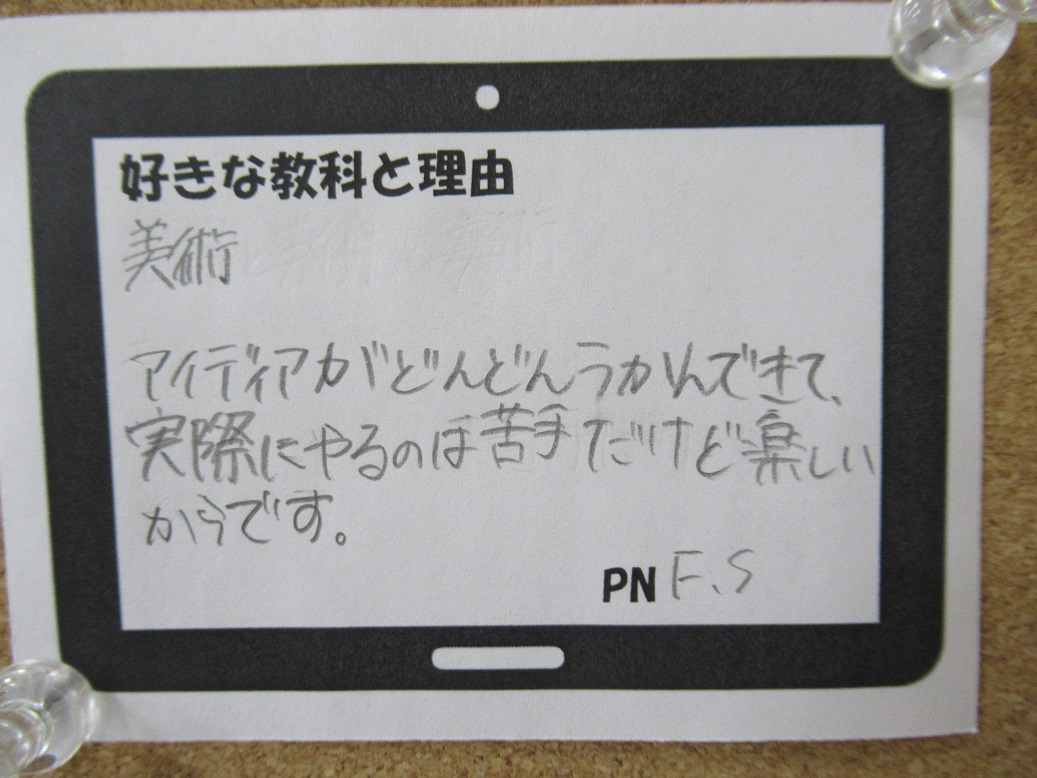 好きな教科と理由
美術
アイディアがどんどんうかんできて、
実際にやるのは苦手だけど楽しい
からです。
PN F.S